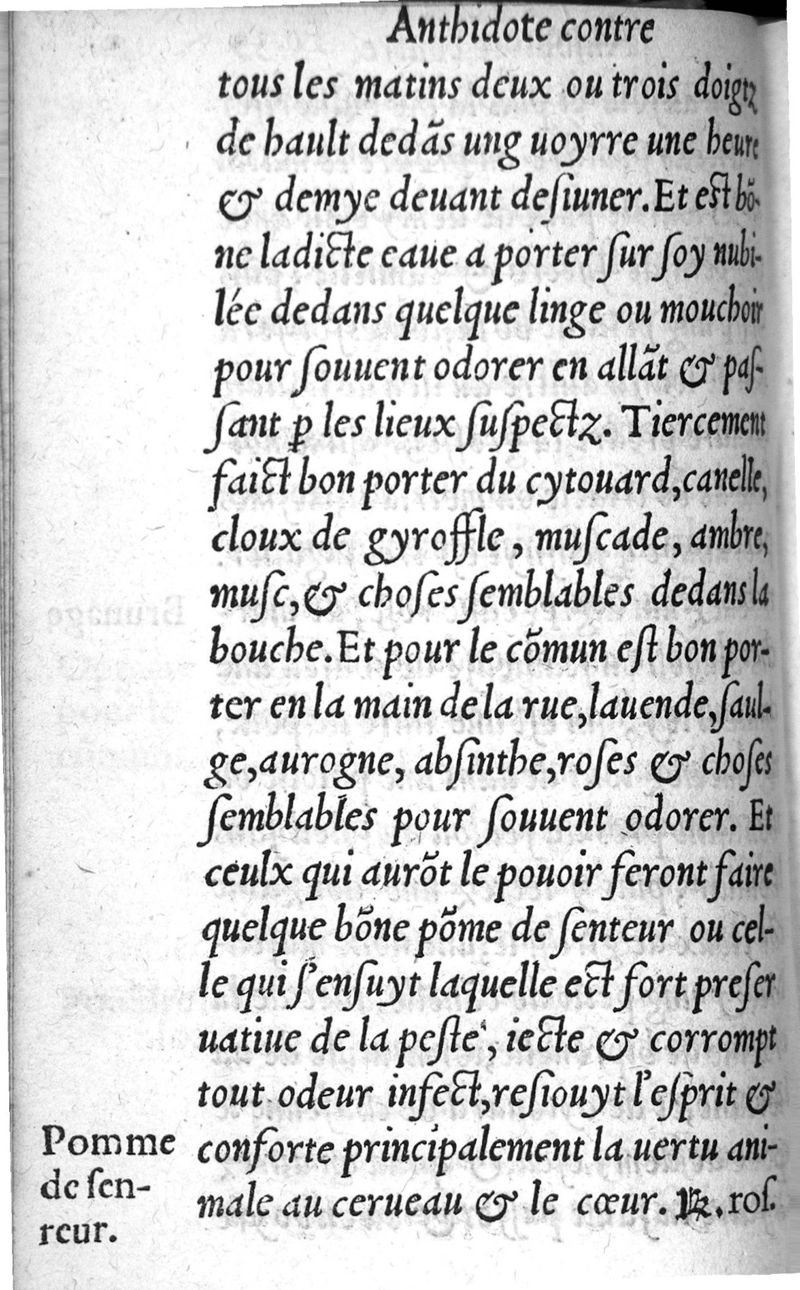 Anthidote contre
tous les matins deux ou trois doigtz
de hault dedãs ung uoyrre une heure
& demye deuant deſiuner. Et eſt bõ-
ne ladicte eaue a porter ſur ſoy nubi-
lée dedans quelque linge ou mouchoir
pour ſouuent odorer en allãt & paſ-
ſant ꝑ les lieux ſuſpectz. Tiercement
faict bon porter du cytouard, canelle,
cloux de gyroffle, muſcade, ambre,
muſc, & choſes ſemblables dedans la
bouche. Et pour le cõmun eſt bon por-
ter en la main de la rue, lauende, ſaul-
ge, aurogne, abſinthe, roſes & choſes
ſemblables pour ſouuent odorer. Et
ceulx qui aurõt le pouoir feront faire
quelque bõne põme de ſenteur ou cel-
le qui ſ'enſuyt laquelle ect fort preſer
uatiue de la peſte, iecte & corrompt
tout odeur infect, reſiouyt l'eſprit &
Pomme
de ſen-
teur.
conforte principalement la uertu ani-
male au cerueau & le cœur. ℞. roſ.